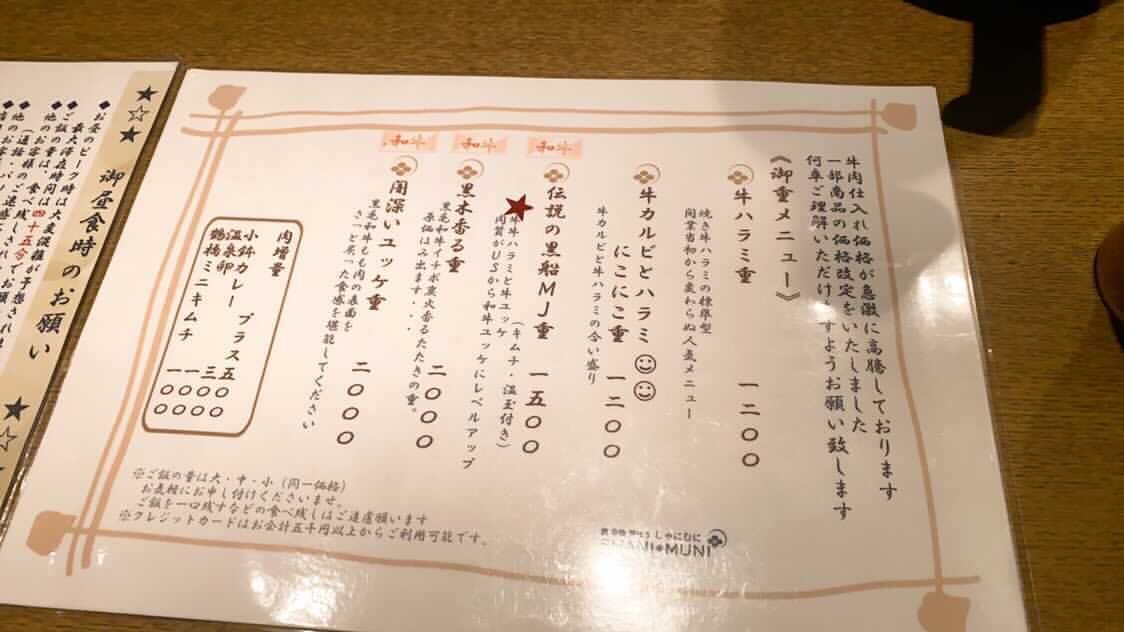 牛肉仕入れ価格が急激に高騰しております
一部商品の価格改定をいたしました
何卒ご理解いただけますようお願い致します
《御重メニュー》
牛ハラミ重 一二〇〇
焼き牛ハラミの標準型
開業当初から変わらぬ人気メニュー
牛カルビとハラミ☺☺
にこにこ重 一二〇〇
牛カルビと牛ハラミの合い盛り
和牛
伝説の黒船MJ重 一五〇〇
(キムチ・温玉付き)
★牛ハラミと牛ユッケ
肉質がUSから和牛ユッケにレベルアップ
和牛
黒木香る重 二〇〇〇
黒毛和牛イチボ炭火香るたたきの重。
原価はみ出ます・・
和牛
闇深いユッケ重 二〇〇〇
黒毛和牛もも肉の表面を
さっと炙った食感を堪能してください
肉増量 プラス五〇〇
小鉢カレー 三〇〇
温泉卵 一〇〇
鶴橋ミニキムチ 一〇〇
※ご飯の量は大・中・小(同一価格)
お気軽にお申し付けくださいませ。
ご飯を一口残すなどの食べ残しはご遠慮願います
※クレジットカードはお会計五千円以上からご利用可能です。
しゃにむに
MUNI
★☆★
御昼食時のお願い
★☆
◆お昼のピーク時は大変混雑が予想されま
◆最大滞在時間は四十五分でお願
◆ご飯の量は、食べ残しされ